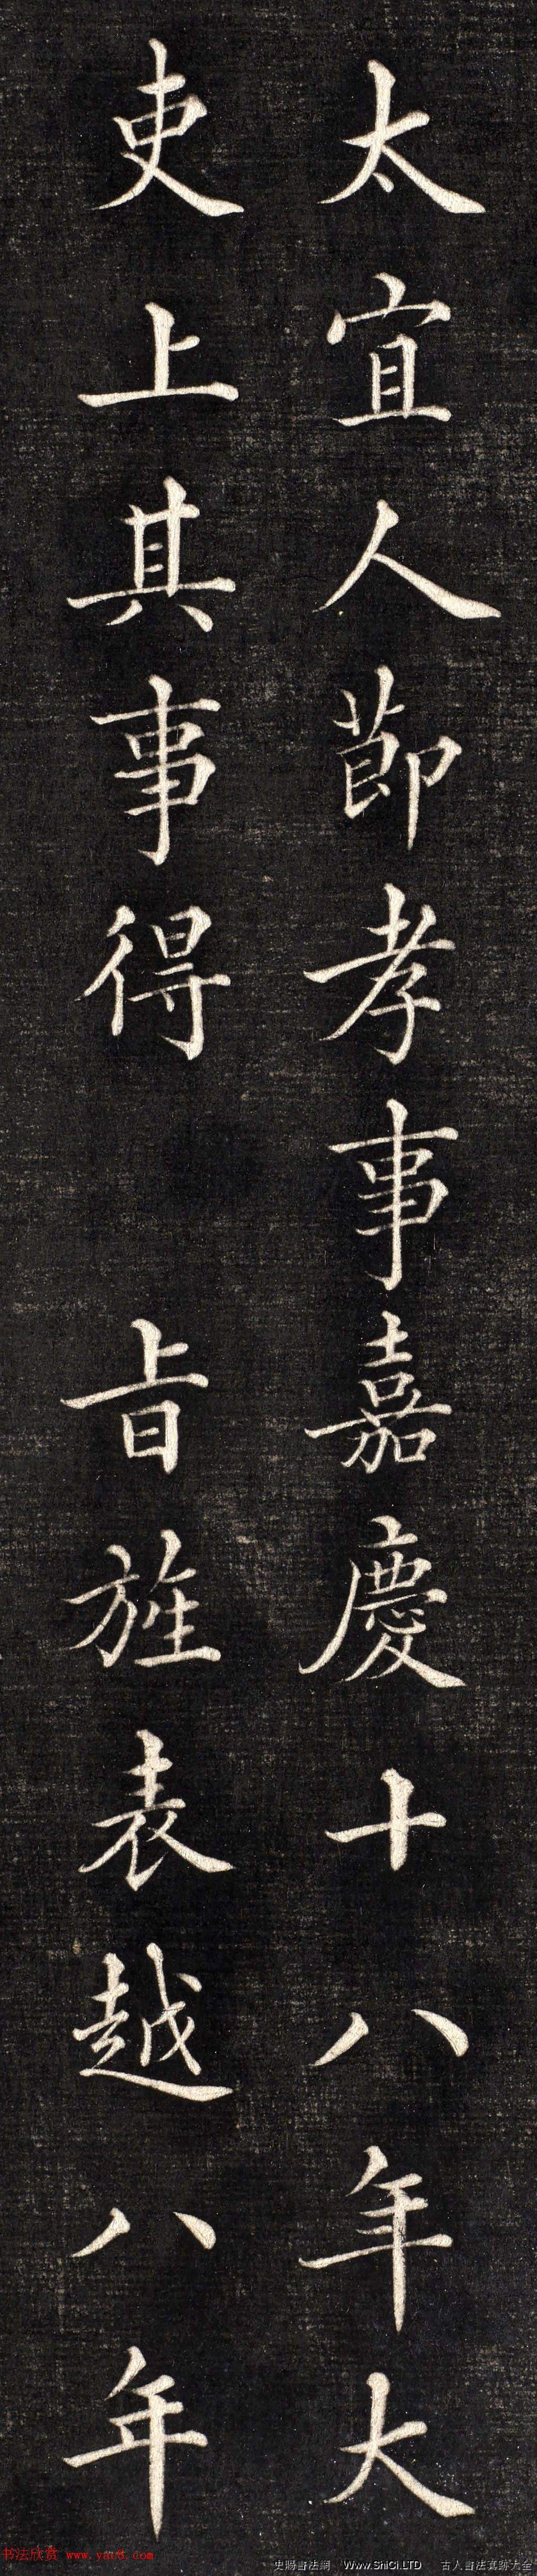 太宜人節孝事嘉慶十八年大
吏上其事得 旨旌表越八年
书法欣赏 www.yac8.com
史賜書法網 Www.ShiCi.LTD 古人書法真跡大全